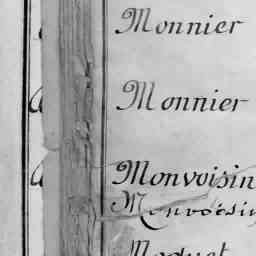 Monnier
Monnier
Monvoisin
Monvoisin